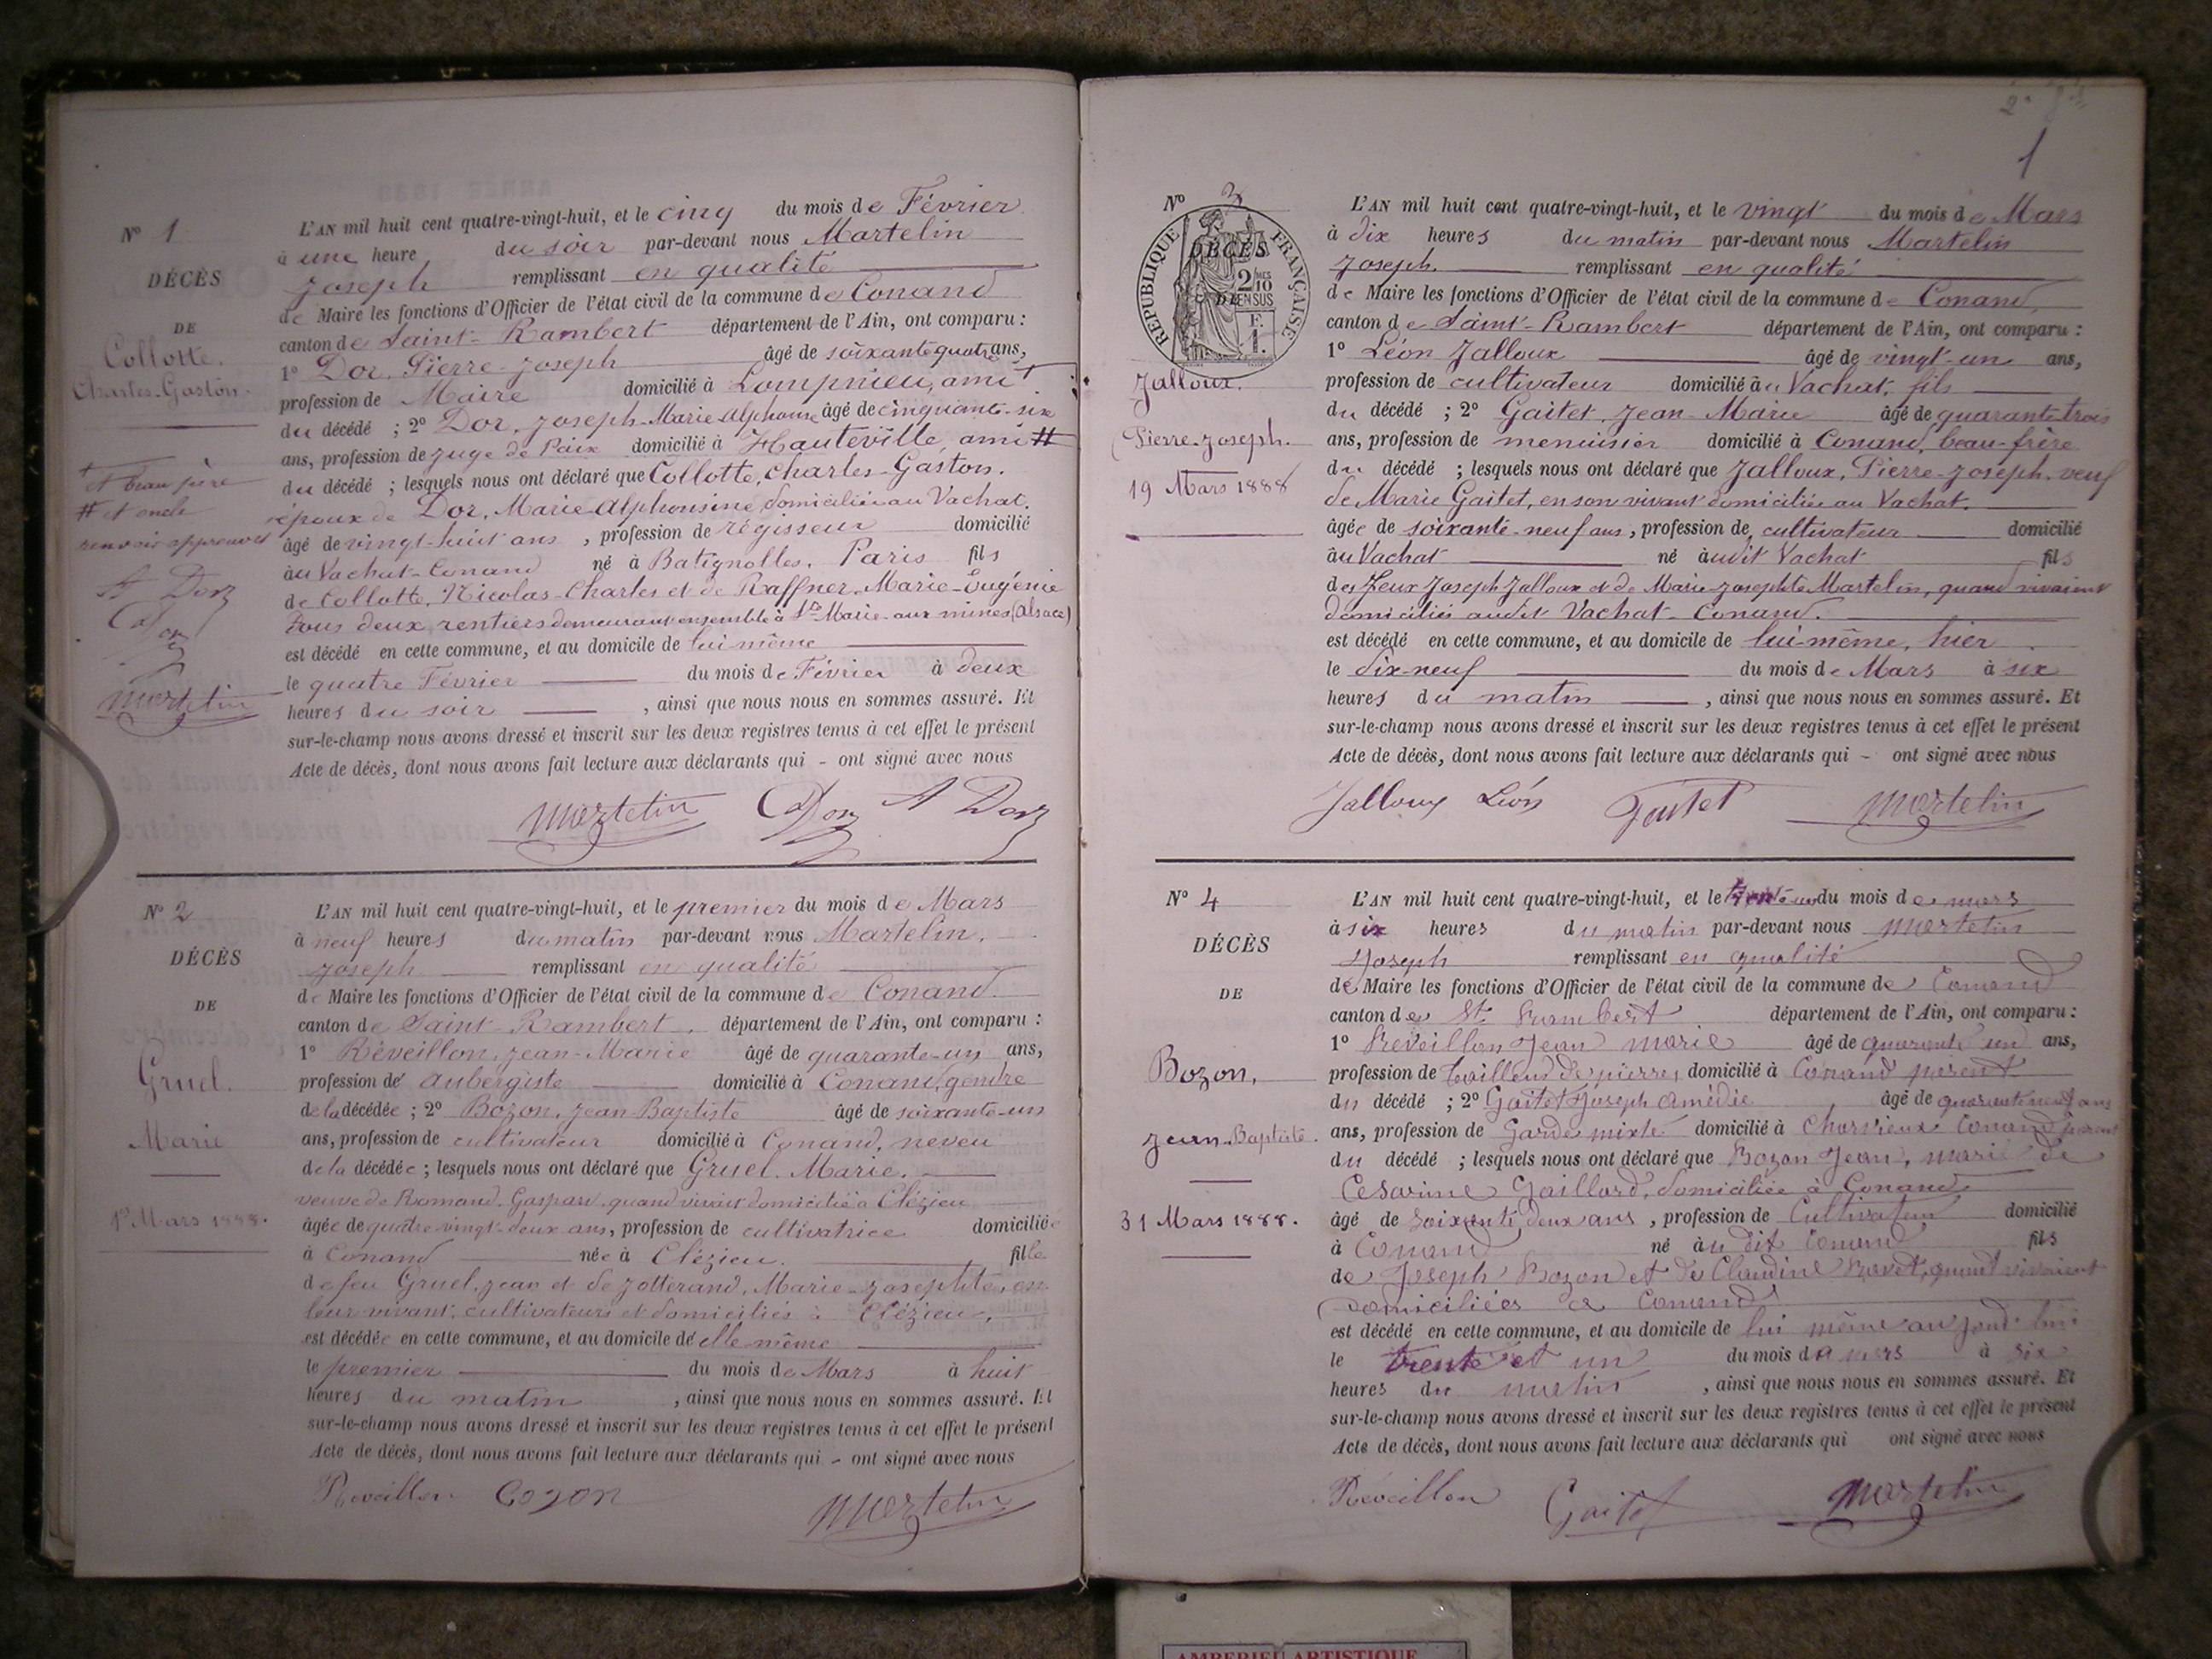 N° 1
DÉCÈS
DE
Collotte.
Charles-Gaston.
+ et beau père
# et oncle
renvois approuvés
A Dor
Dor
Martelin
L'AN mil huit cent quatre-vingt-huit, et le cinq du mois de Février
à une heure du soir par-devant nous Martelin
Joseph remplissant en qualité
de Maire les fonctions d'Officier de l'état civil de la commune de Conand
canton de Saint-Rambert département de l'Ain, ont comparu :
1° Dor, Pierre-Joseph âgé de soixante quatre ans,
profession de Maire domicilié à Lompnieu, ami +
du décédé ; 2° Dor, Joseph-Marie Alphonse âgé de cinquante-six
ans, profession de juge de Paix domicilié à Hauteville, ami #
du décédé ; lesquels nous ont déclaré que Collotte, Charles-Gaston.
époux de Dor, Marie-Alphonsine, domiciliée au Vachat.
âgé de vingt-huit ans , profession de régisseur domicilié
au Vachat-Conand né à Batignolles, Paris fils
de Collotte, Nicolas-Charles et de Raffner, Marie-Eugénie
tous deux rentiers demeurant ensemble à Ste Marie-aux mines (Alsace)
est décédé en cette commune, et au domicile de lui même
le quatre Février du mois de Février à deux
heures du soir , ainsi que nous nous en sommes assuré. Et
sur-le-champ nous avons dressé et inscrit sur les deux registres tenus à cet effet le présent
Acte de décès, dont nous avons fait lecture aux déclarants qui - ont signé avec nous
Martelin Dor A Dor
N° 2
DÉCÈS
DE
Gruel.
Marie
1er Mars 1888.
L'AN mil huit cent quatre-vingt-huit, et le premier du mois de Mars
à neuf heures du matin par-devant nous Martelin,
Joseph remplissant en qualité
de Maire les fonctions d'Officier de l'état civil de la commune de Conand
canton de Saint-Rambert, département de l'Ain, ont comparu :
1° Réveillon, Jean-Marie âgé de quarante-un ans,
profession de aubergiste domicilié à Conand, gendre
de la décédée ; 2° Bozon, Jean Baptiste âgé de soixante-un
ans, profession de cultivateur domicilié à Conand, neveu
de la décédée ; lesquels nous ont déclaré que Gruel, Marie,
veuve de Romand, Gaspard, quand vivait domicilié à Clézieu
âgée de quatre vingt-deux ans, profession de cultivatrice domiciliée
à Conand née à Clézieu. fille
de feu Gruel, Jean et de Jotterand, Marie-Josephte, en
leur vivant, cultivateurs et domiciliés à Clézieu,
est décédée en cette commune, et au domicile de elle même
le premier du mois de Mars à huit
heures du matin , ainsi que nous nous en sommes assuré. Et
sur-le-champ nous avons dressé et inscrit sur les deux registres tenus à cet effet le présent
Acte de décès, dont nous avons fait lecture aux déclarants qui - ont signé avec nous
Reveillon Bozon Martelin
1
N° 3
RÉPUBLIQUE FRANÇAISE
2/10 EN SUS
F. 1.
DÉCÈS
DE
Jalloux.
Pierre-Joseph.
19 Mars 1888
L'AN mil huit cent quatre-vingt-huit, et le vingt du mois de Mars
à dix heures du matin par-devant nous Martelin
Joseph. remplissant en qualité
de Maire les fonctions d'Officier de l'état civil de la commune de Conand,
canton de Saint-Rambert département de l'Ain, ont comparu :
1° Léon Jalloux âgé de vingt-un ans,
profession de cultivateur domicilié au Vachat, fils
du décédé ; 2° Gaitet, Jean-Marie âgé de quarante trois
ans, profession de menuisier domicilié à Conand, beau-frère
du décédé ; lesquels nous ont déclaré que Jalloux, Pierre-Joseph, veuf
de Marie Gaitet, en son vivant domiciliée au Vachat.
âgée de soixante-neuf ans, profession de cultivateur domicilié
au Vachat né audit Vachat fils
des feux Joseph Jalloux et de Marie-Josephte Martelin, quand vivaient
domiciliés audit Vachat-Conand.
est décédé en cette commune, et au domicile de lui-même, hier
le dix-neuf du mois de Mars à six
heures du matin , ainsi que nous nous en sommes assuré. Et
sur-le-champ nous avons dressé et inscrit sur les deux registres tenus à cet effet le présent
Acte de décès, dont nous avons fait lecture aux déclarants qui - ont signé avec nous
Jalloux Léon Gaitet Martelin
N° 4
DÉCÈS
DE
Bozon,
Jean-Baptiste.
31 Mars 1888.
L'AN mil huit cent quatre-vingt-huit, et le trente un du mois de mars
à six heures du matin par-devant nous Martelin
Joseph remplissant en qualité
de Maire les fonctions d'Officier de l'état civil de la commune de Conand
canton de St Rambert département de l'Ain, ont comparu :
1° Reveillon Jean marie âgé de quarante un ans,
profession de tailleur de pierres domicilié à Conand parent
du décédé ; 2° Gaitet Joseph Amédée âgé de quarante neuf ans
ans, profession de Garde mixte domicilié à Charvieux Conand parent
du décédé ; lesquels nous ont déclaré que Bozon Jean, mari de
Cesarine Gaillard, domiciliée à Conand
âgé de soixante deux ans , profession de Cultivateur domicilié
à Conand né au dit Conand fils
de Joseph Bozon et de Claudine Ravet, quand vivaient
domiciliées a Conand
est décédé en cette commune, et au domicile de lui même aujourd'hui
le trente et un du mois de mars à six
heures du matin , ainsi que nous nous en sommes assuré. Et
sur-le-champ nous avons dressé et inscrit sur les deux registres tenus à cet effet le présent
Acte de décès, dont nous avons fait lecture aux déclarants qui ont signé avec nous
Réveillon Gaitet Martelin
AMBERIEU ARTISTIQUE